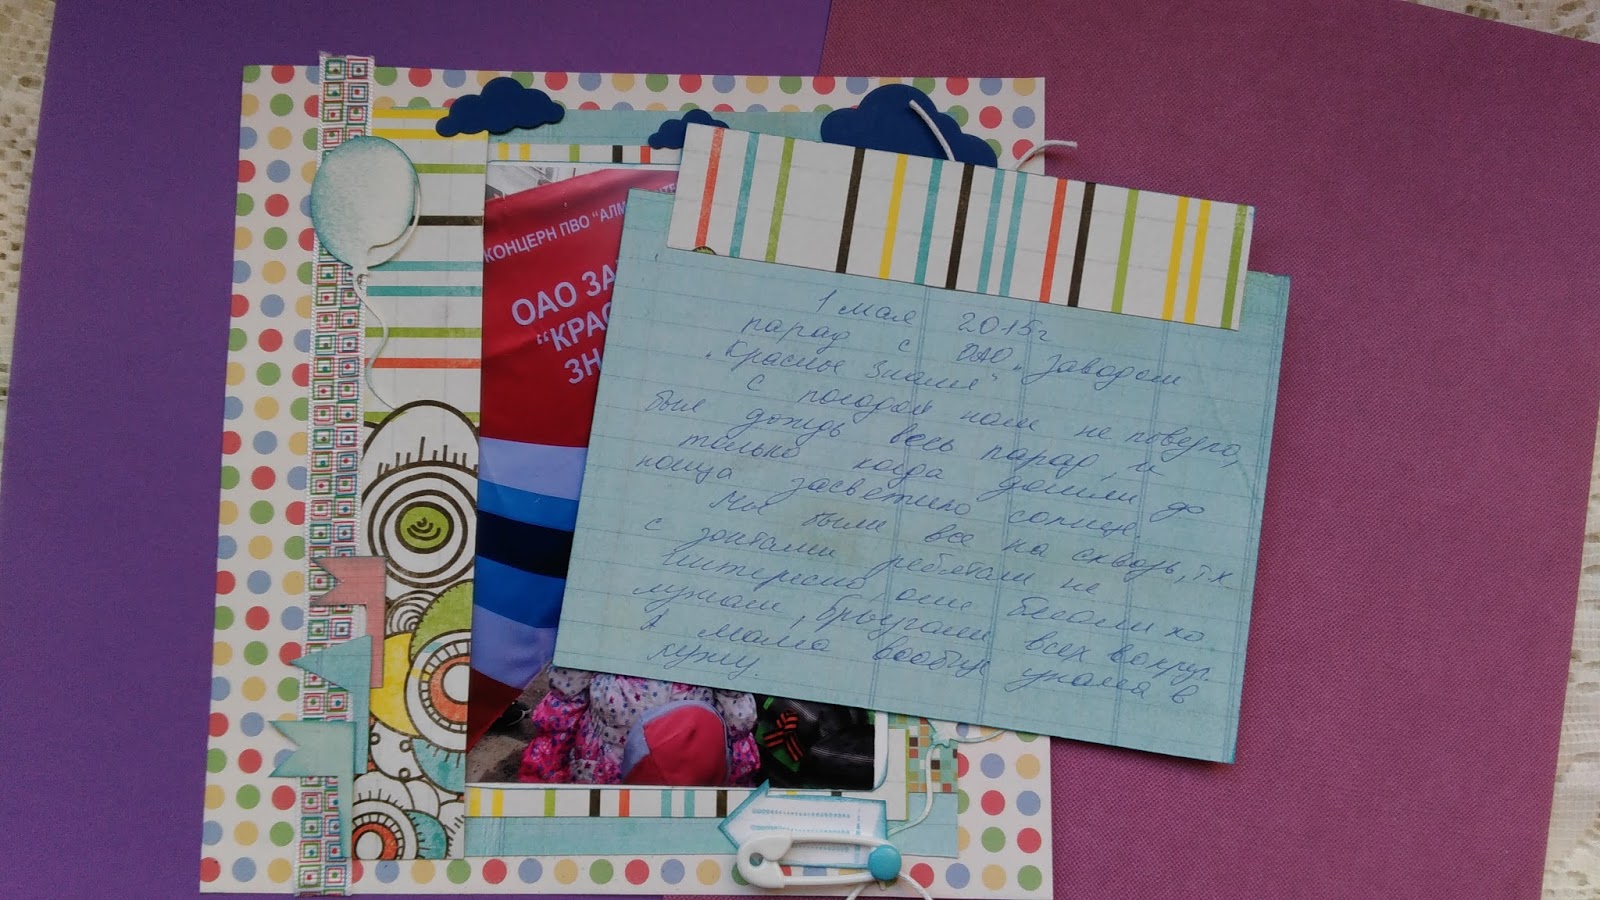 КОНЦЕРН ПВО "АЛМ
ОАО ЗА
"КРАС
ЗН
1 мая 2015г
парад с ОАО "Заводом
"Красное Знамя"
С погодой нам не повезло,
был дождь весь парад, и
только когда дошли до
конца засветило солнце.
Мы были все на сквозь, т.к
с зонтами ребятам не
интересно, они бегали по
лужам, брызгали всех вокруг.
А мама вообще упала в
лужу.